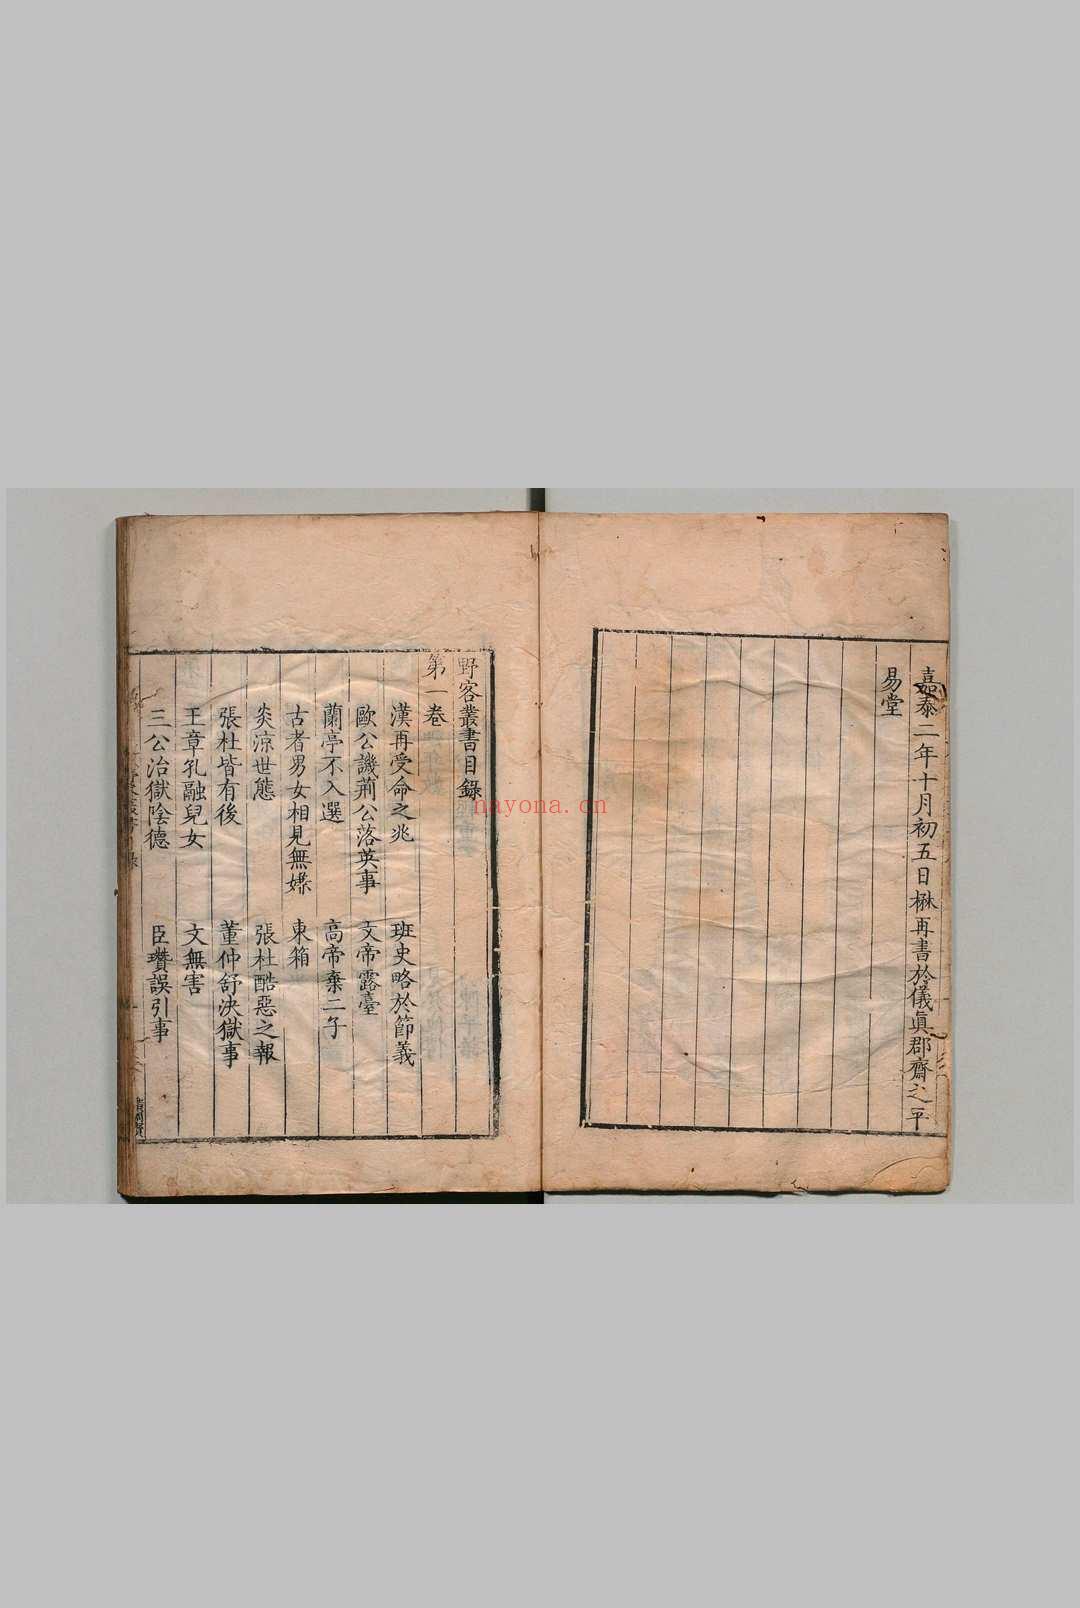 嘉泰二年十月初五日楙再書於儀眞郡齋之平
易堂
野客叢書目錄
第一卷
漢再受命之兆 班史略於節義
歐公譏荊公落英事 文帝露臺
蘭亭不入選 高帝棄二子
古者男女相見無嫌 東箱
炎涼世態 張杜酷惡之報
張杜皆有後 董仲舒決獄事
王章孔融兒女 文無害
三公治獄陰德 臣瓚誤引事
nayona.cn